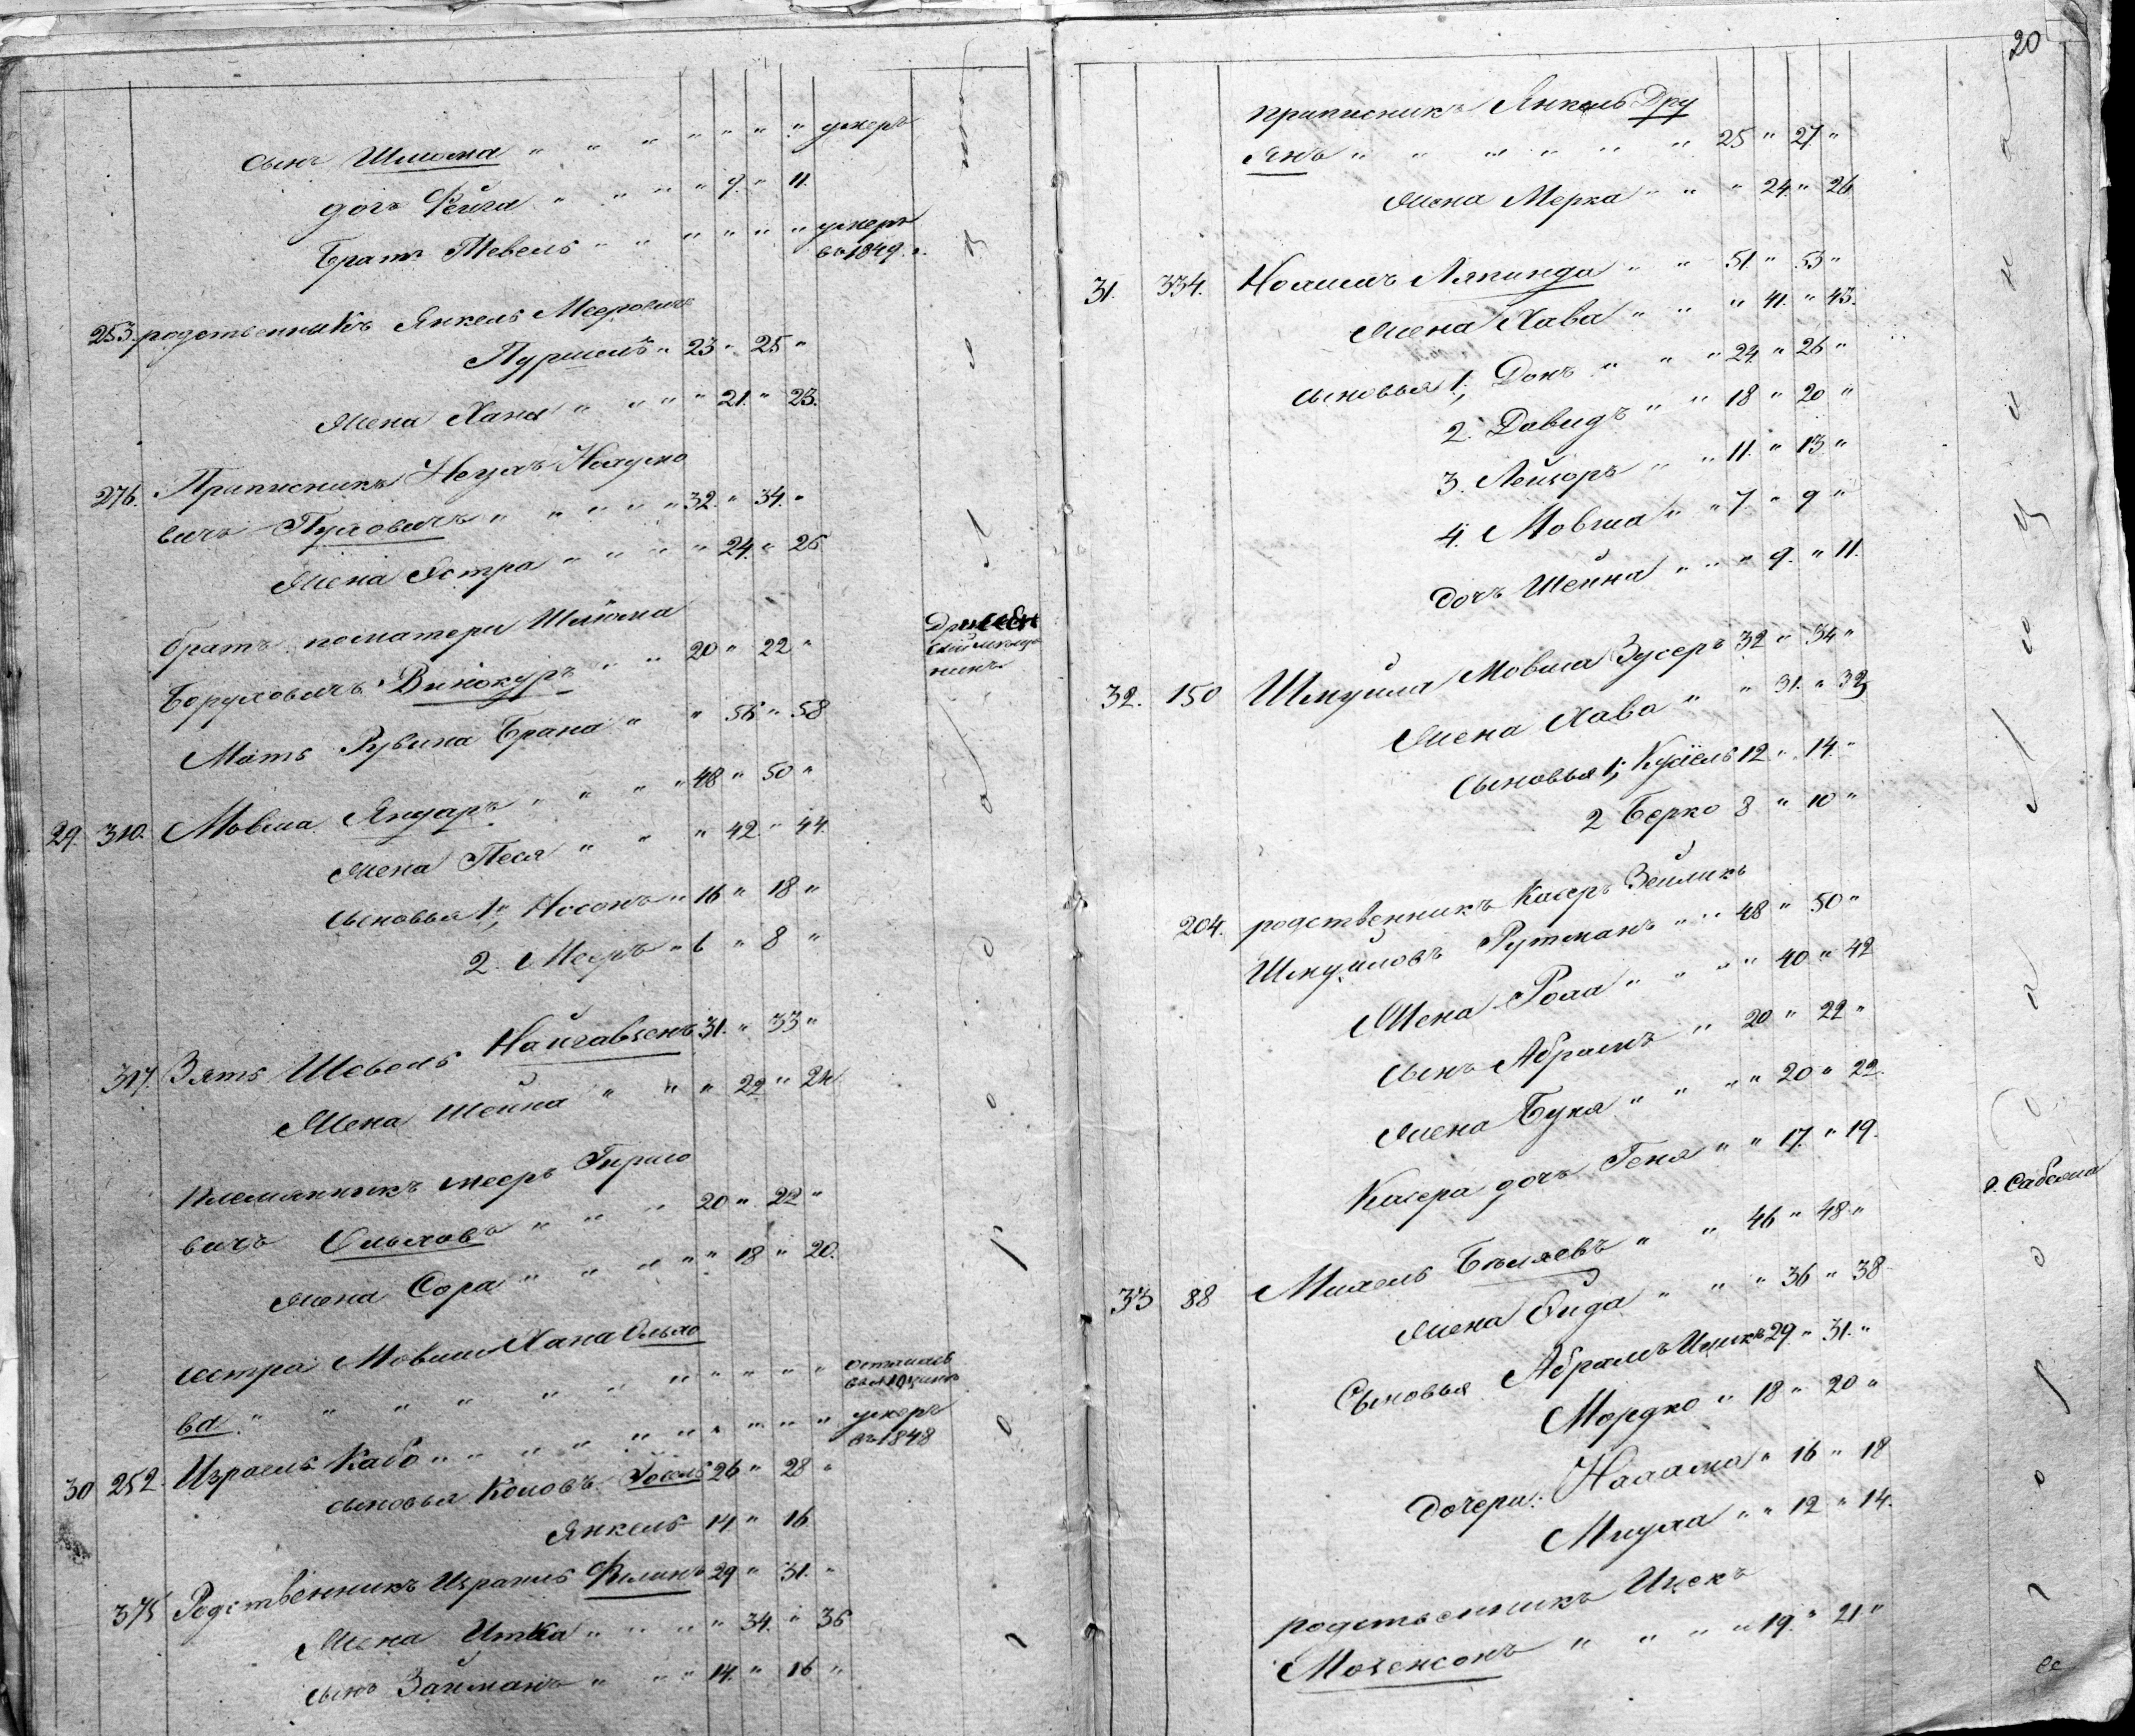 сынъ Шлиома " " " " " " " умеръ
дочь Фейга " " " " 9. " 11.
Братъ Тевель " " " " " " умеръ
въ 1849 г.
253. родственникъ Янкель Мееровичъ
Пуршель " 23 " 25 "
жена Хана " " " " 21. " 23.
276. Приписникъ Ноухъ Наумо
вичъ Пуховичъ " " " " " 32. " 34. "
жена Эстра " " " " 24. " 26
братъ поматери Шлиома
Боруховичъ Винокуръ " " 20 " 22 "
мѣща
нинъ
Мать Рувина Брана " " 56 " 58
29. 310. Мовша Янгаръ " " " " 48 " 50 "
жена Песя " " " 42 " 44.
сыновья 1, Носонъ " 16 " 18 "
2. Мееръ " 6 " 8 "
317. Зять Шевель Найгавзенъ 31. " 33 "
Жена Шейна " " " 22 " 24
племянникъ Мееръ Гиршо
вичъ Ольховъ " " " 20 " 22 "
жена Сора " " " " " 18 " 20.
сестра Мовши Хана Ольхо
ва " " " " " " " " " " " осталась
30 252. Израель Кабо " " " " " " " " " " умеръ
въ 1848
сыновья Коповъ Іосель 26 " 28 "
Янкель 14 " 16
375 Родственникъ Израиль Филинъ 29 " 31. "
Жена Итка " " " " 34. " 36
сынъ Займанъ " " " 14. " 16 "
20
приписникъ Янкель Дру
янъ " " " " " " 25 " 27. "
жена Мерка " " " 24. " 26
31. 334. Нохимъ Ляпинда " " 51 " 53 "
жена Хава " " " 41. " 43.
сыновья 1, Донъ " " " 24 " 26 "
2. Давидъ " " 18 " 20 "
3. Лейзоръ " " 11. " 13 "
4. Мовша " " 7 " 9 "
дочь Шейна " " " 9. " 11.
32. 150 Шмуйла Мовша Зусеръ 32 " 34 "
жена Хава " " 31. " 33
сыновья 1, Кусель 12 " 14. "
2 Берко 8 " 10 "
204. родственникъ Касеръ Зеликъ
Шмуйловъ Рутманъ " " 48 " 50 "
Жена Роха " " " " 40 " 42
сынъ Абрамъ " 20 " 22 "
жена Буня " " " " 20 " 22.
Касера дочь Геня " " 17. " 19.
33 88 Михель Бѣляевъ " " 46 " 48. "
жена Фида " " " 36 " 38
Сыновья Абрамъ Ицикъ 29. " 31. "
Мордко " 18 " 20 "
Дочери: Нахама " 16 " 18
Миуха " " 12 " 14.
родственникъ Ицекъ
Мовенсонъ " " " " 19. " 21. "